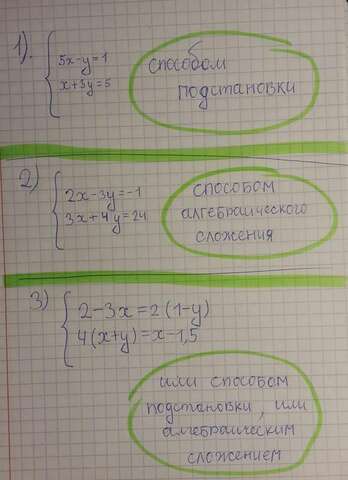 1). 5x-y=1
x+3y=5
способом
подстановки
2) 2x-3y=-1
3x+4y=24
способом
алгебраического
сложения
3) 2-3x=2(1-y)
4(x+y)=x-1,5
или способом
подстановки, или
алгебраическим
сложением